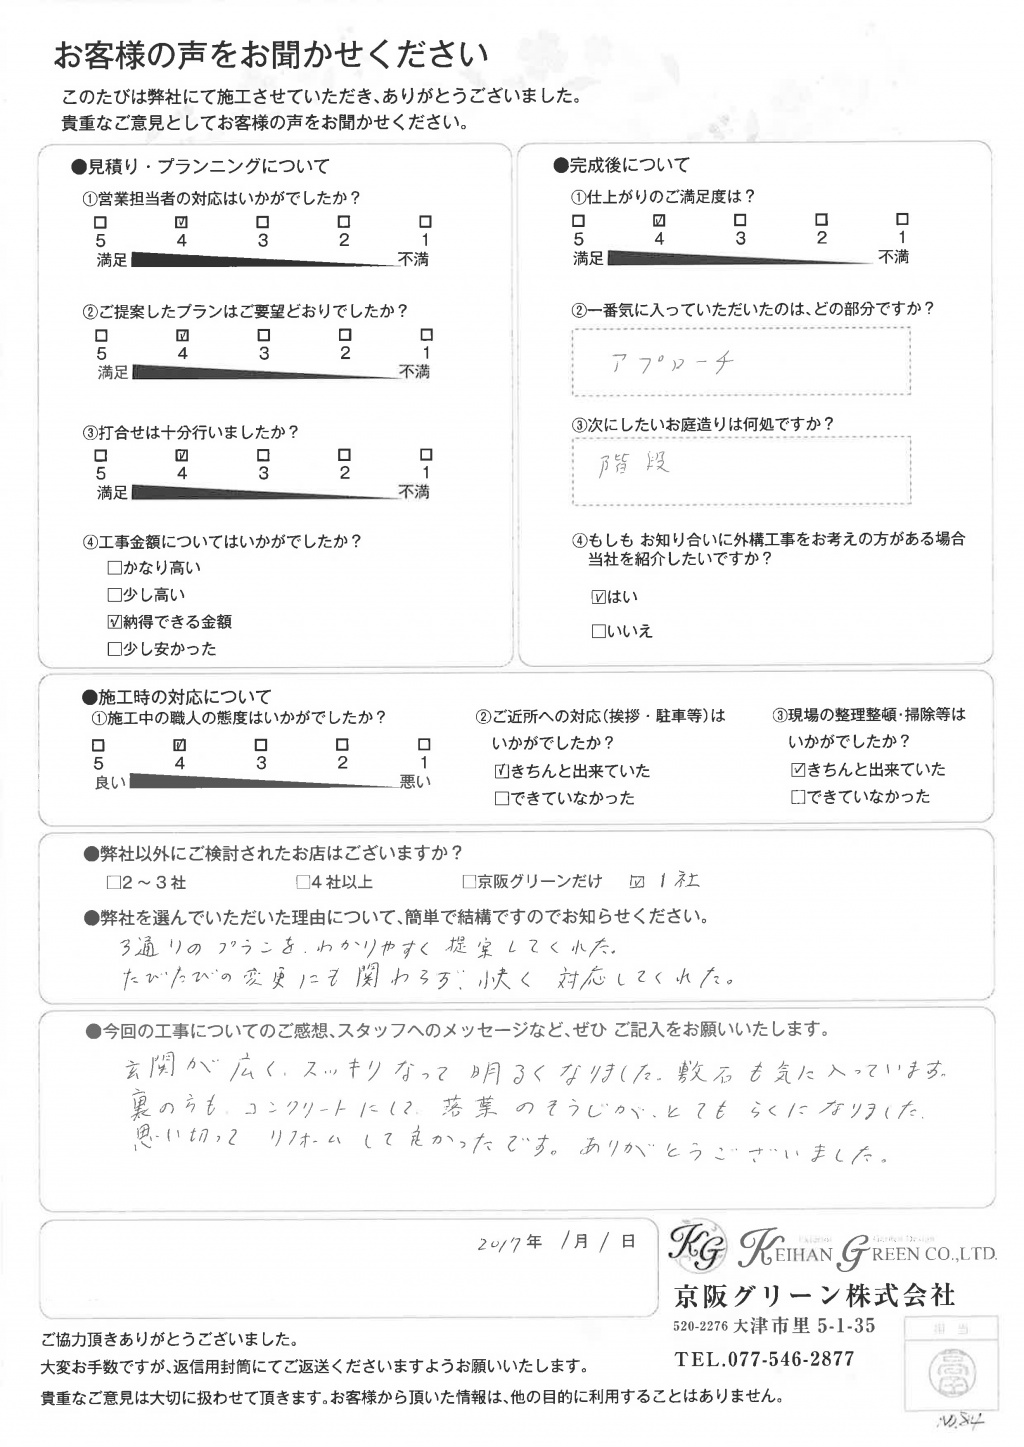 お客様の声をお聞かせください
このたびは弊社にて施工させていただき、ありがとうございました。
貴重なご意見としてお客様の声をお聞かせください。
●見積り・プランニングについて
①営業担当者の対応はいかがでしたか？
□ ☑ □ □ □
5 4 3 2 1
満足 不満
②ご提案したプランはご要望どおりでしたか？
□ ☑ □ □ □
5 4 3 2 1
満足 不満
③打合せは十分行いましたか？
□ ☑ □ □ □
5 4 3 2 1
満足 不満
④工事金額についてはいかがでしたか？
□かなり高い
□少し高い
☑納得できる金額
□少し安かった
●完成後について
①仕上がりのご満足度は？
□ ☑ □ □ □
5 4 3 2 1
満足 不満
②一番気に入っていただいたのは、どの部分ですか？
アプローチ
③次にしたいお庭造りは何処ですか？
階段
④もしも お知り合いに外構工事をお考えの方がある場合
当社を紹介したいですか？
☑はい
□いいえ
●施工時の対応について
①施工中の職人の態度はいかがでしたか？
□ ☑ □ □ □
5 4 3 2 1
良い 悪い
②ご近所への対応（挨拶・駐車等）は
いかがでしたか？
☑きちんと出来ていた
□できていなかった
③現場の整理整頓・掃除等は
いかがでしたか？
☑きちんと出来ていた
□できていなかった
●弊社以外にご検討されたお店はございますか？
□2～3社 □4社以上 □京阪グリーンだけ ☑ 1社
●弊社を選んでいただいた理由について、簡単で結構ですのでお知らせください。
3通りのプランを、わかりやすく提案してくれた。
たびたびの変更にも関わらず、快く対応してくれた。
●今回の工事についてのご感想、スタッフへのメッセージなど、ぜひ ご記入をお願いいたします。
玄関が広く、スッキリなって明るくなりました。敷石も気に入っています。
裏の方も、コンクリートにして、落葉のそうじが、とてもらくになりました。
思い切ってリフォームして良かったです。ありがとうございました。
2017年 1月 1日
KG KEIHAN GREEN CO.,LTD.
京阪グリーン株式会社
520-2276 大津市里 5-1-35
TEL.077-546-2877
ご協力頂きありがとうございました。
大変お手数ですが、返信用封筒にてご返送くださいますようお願いいたします。
貴重なご意見は大切に扱わせて頂きます。お客様から頂いた情報は、他の目的に利用することはありません。
担当
NO.814